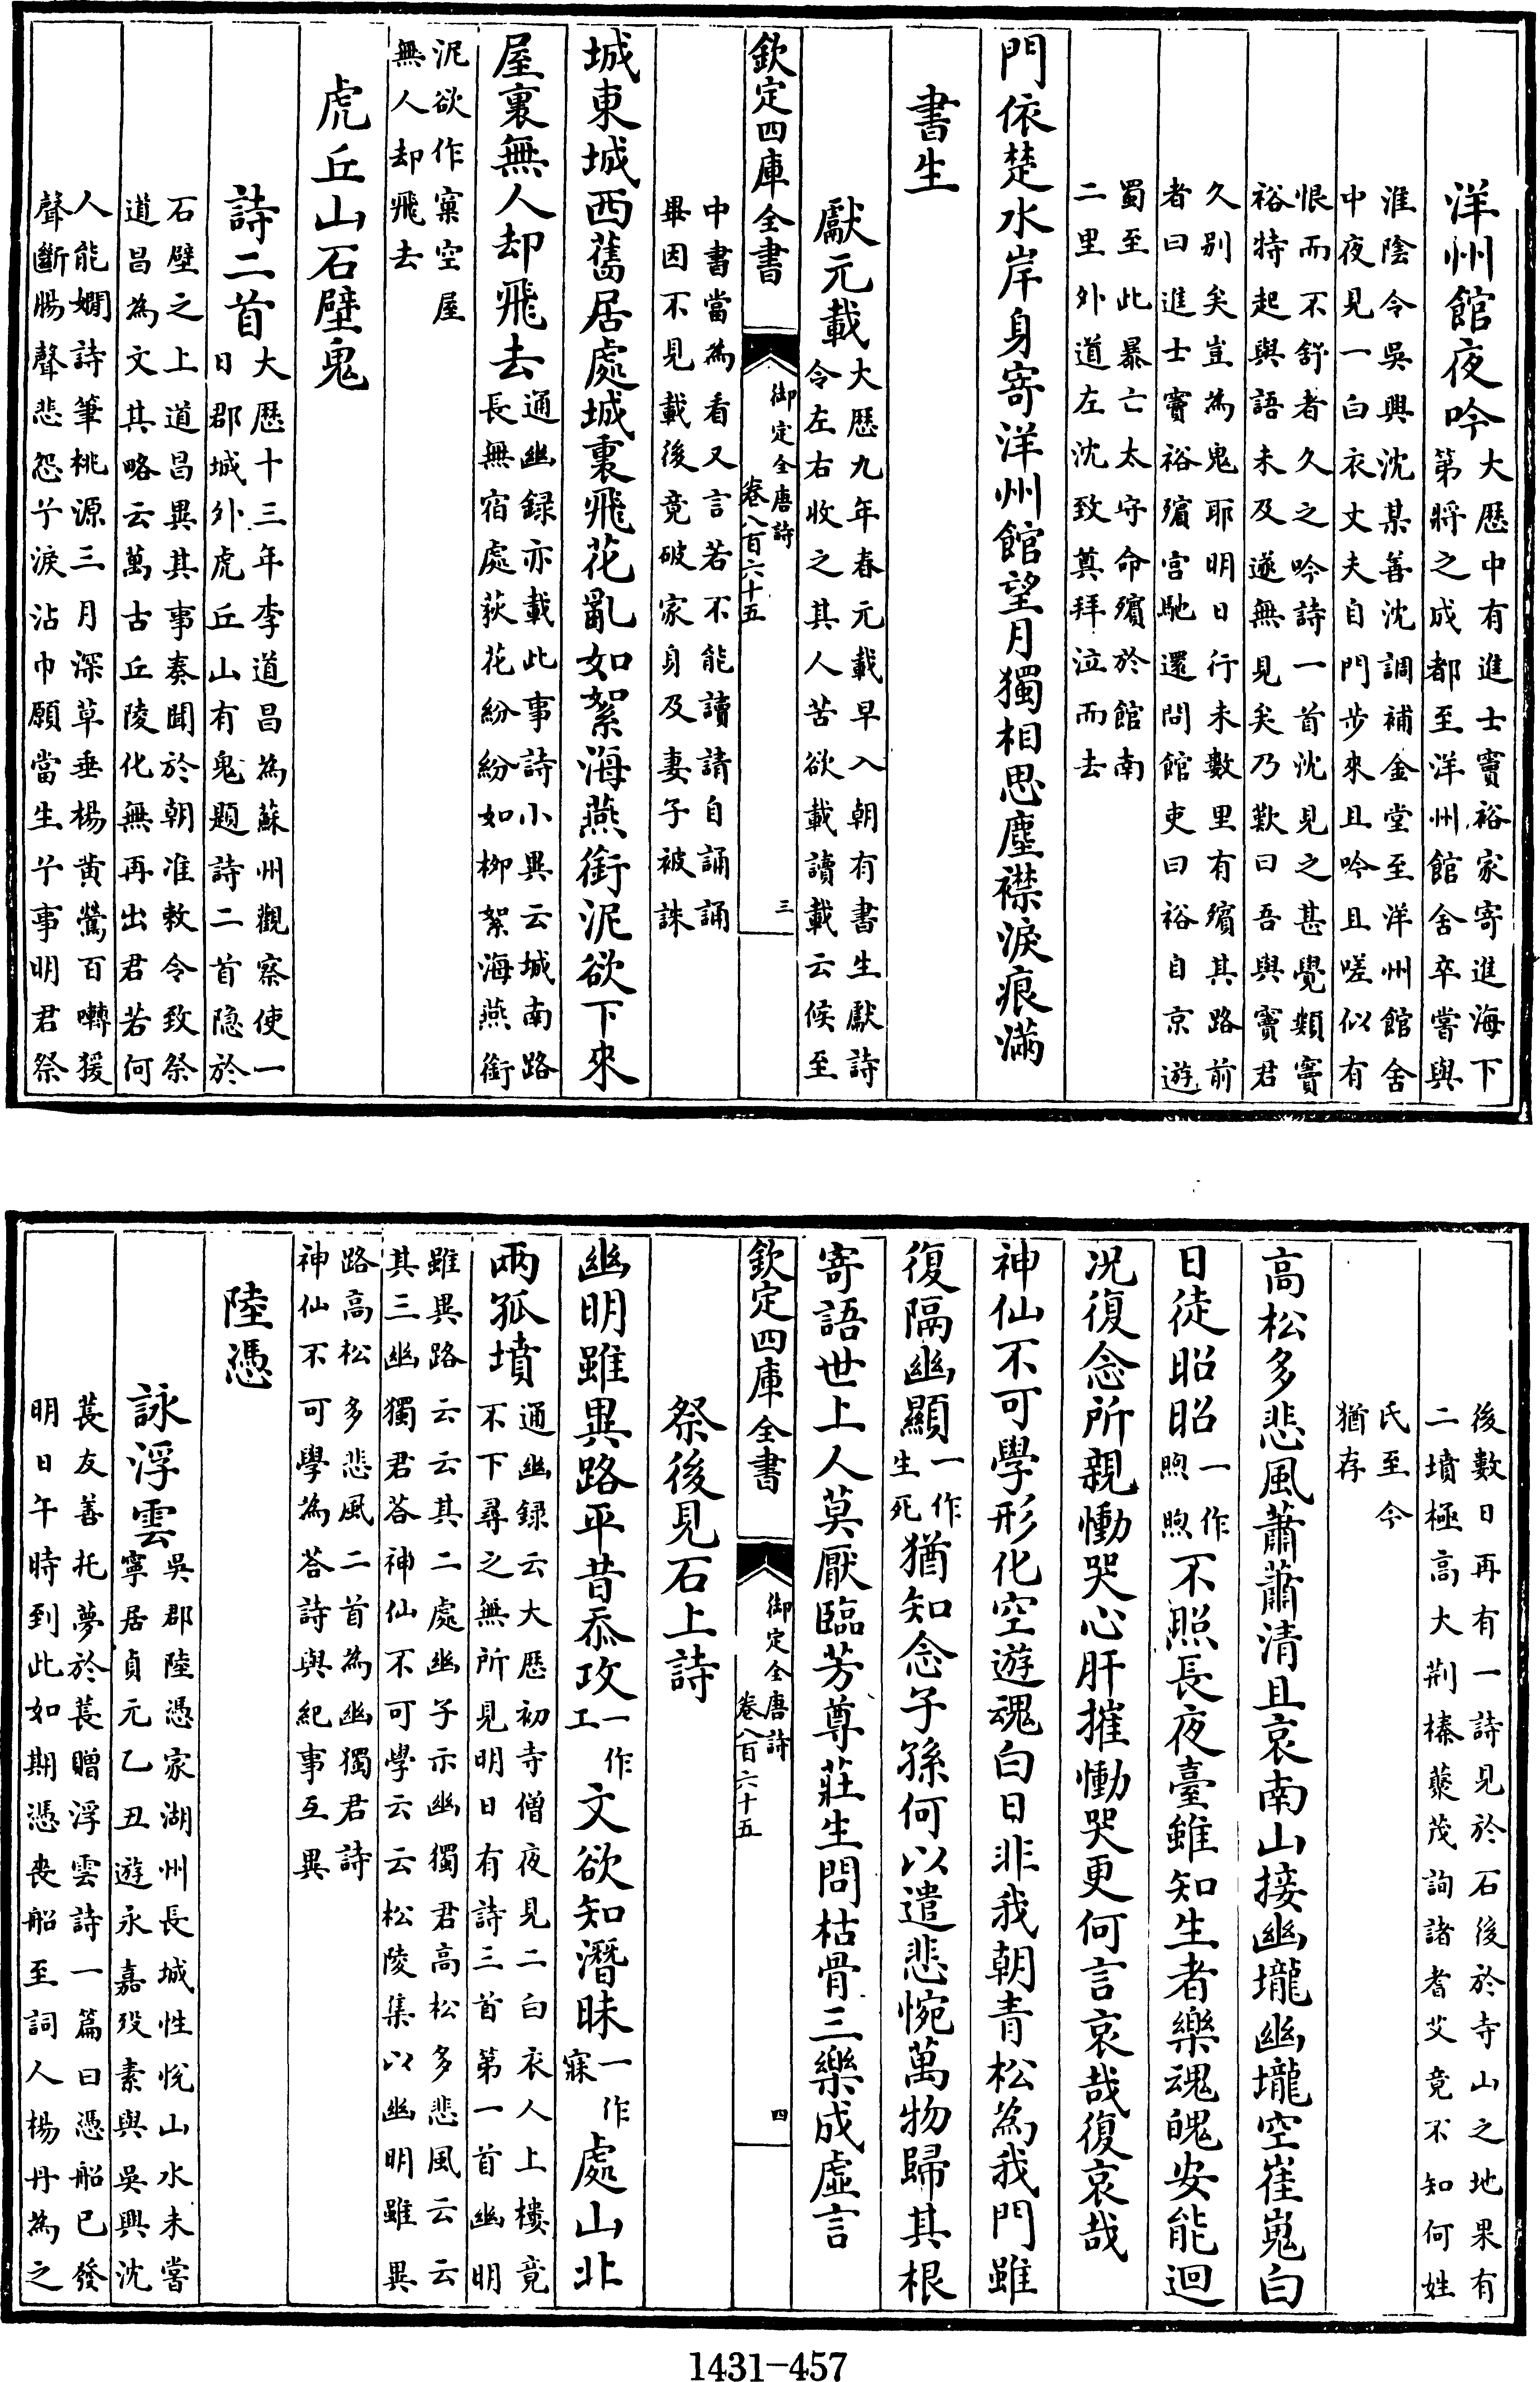 洋州館夜吟大歷中有進士竇裕家寄進海下
第將之成都至洋州館舍卒嘗與
淮陰令吳興沈某善沈調補金堂至洋州館舍
中夜見一白衣丈夫自門步來且吟且嗟似有
恨而不舒者久之吟詩一首沈見之甚覺類竇
裕特起與語未及遂無見矣乃歎曰吾與竇君
久别矣豈為鬼耶明日行未數里有殯其路前
者曰進士竇裕殯宫馳還問館吏曰裕自京遊
蜀至此暴亡太守命殯於館南
二里外道左沈致奠拜泣而去
門依楚水岸身寄洋州館望月獨相思塵襟淚痕滿
書生
獻元載大歷九年春元載早入朝有書生獻詩
令左右收之其人苦欲載讀載云候至
欽定四庫全書
御定全唐詩
卷八百六十五
三
中書當為看又言若不能讀請自誦誦
畢因不見載後竟破家身及妻子被誅
城東城西舊居處城裏飛花亂如絮海燕銜泥欲下來
屋裏無人却飛去通幽録亦載此事詩小異云城南路
長無宿處荻花紛紛如栁絮海燕銜
泥欲作窠空屋
無人却飛去
虎丘山石壁鬼
詩二首大歷十三年李道昌為蘇州觀察使一
日郡城外虎丘山有鬼題詩二首隐於
石壁之上道昌異其事奏聞於朝准敕令致祭
道昌為文其略云萬古丘陵化無再出君若何
人能嫺詩筆桃源三月深草垂楊黄鶯百囀援
聲斷腸聲悲怨兮淚沾巾願當生兮事明君祭
後數日再有一詩見於石後於寺山之地果有
二墳極高大荆榛蘩茂詢諸耆艾竟不知何姓
氏至今
猶存
高松多悲風蕭蕭清且哀南山接幽壠幽壠空崔嵬白
日徒昭昭一作煦煦不照長夜臺雖知生者樂魂魄安能迴
况復念所親慟哭心肝摧慟哭更何言哀哉復哀哉
神仙不可學形化空遊魂白日非我朝青松為我門雖
復隔幽顯一作生死猶知念子孫何以遣悲惋萬物歸其根
寄語世上人莫厭臨芳尊莊生問枯骨三樂成虚言
欽定四庫全書
御定全唐詩
卷八百六十五
四
祭後見石上詩
幽明雖異路平昔忝攻一作工文欲知潛昧一作寐處山北
兩孤墳通幽録云大歷初寺僧夜見二白衣人上樓竟
不下尋之無所見明日有詩三首第一首幽明
雖異路云云其二處幽子示幽獨君高松多悲風云云
其三幽獨君荅神仙不可學云云松陵集以幽明雖異
路高松多悲風二首為幽獨君詩
神仙不可學為荅詩與紀事互異
陸憑
詠浮雲吳郡陸憑家湖州長城性悅山水未嘗
寧居貞元乙丑遊永嘉歿素與吳興沈
萇友善托夢於萇贈浮雲詩一篇曰憑船已發
明日午時到此如期憑喪船至詞人楊丹為之
1431-457